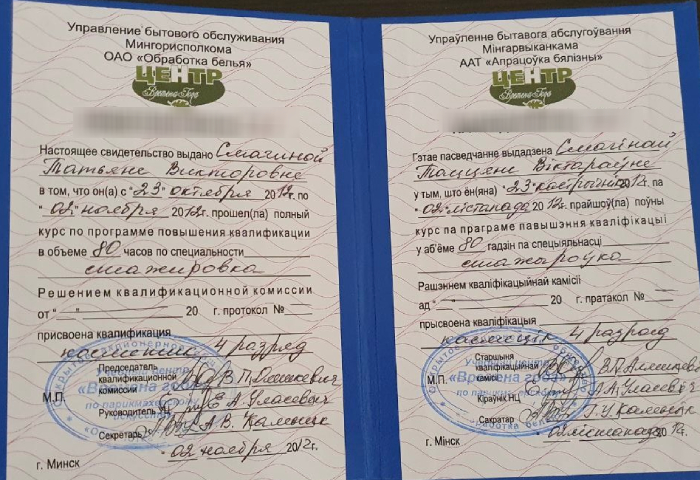 Управление бытового обслуживания
Мингорисполкома
ОАО «Обработка белья»
ЦЕНТР
Времена Года
Настоящее свидетельство выдано Смагиной
Татьяне Викторовне
в том, что он(а) с "23" октября 2012г. по
"02" ноября 2012г. прошел(ла) полный
курс по программе повышения квалификации
в объеме 80 часов по специальности
стажировка
Решением квалификационной комиссии
от "___" 20 г. протокол №
присвоена квалификация
4 разряд
Председатель
квалификационной
комиссии
М.П.
Руководитель
Секретарь
02 ноября 2012г.
г. Минск
Упраўленне бытавога абслугоўвання
Мінгарвыканкама
ААТ «Апрацоўка бялізны»
ЦЕНТР
Времена Года
Гэтае пасведчанне выдадзена Смагінай
Таццяне Віктараўне
у тым, што ён(яна) "23" кастрычніка 2012г. па
"02" лістапада 2012г. прайшоў(ла) поўны
курс па праграме павышэння кваліфікацыі
у аб'ёме 80 гадзін па спецыяльнасці
стажароўка
Рашэннем кваліфікацыйнай камісіі
ад "___" 20 г. пратакол №
прысвоена кваліфікацыя
4 разрад
Старшыня
кваліфікацыйнай
камісіі
М.П.
Кіраўнік НЦ
Сакратар
02 лістапада 2012г.
г. Мінск